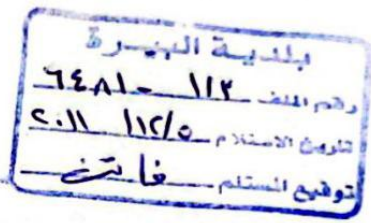 بلدية البيرة
رقم الملف ١١٣ - ٦٤٨١
تاريخ الاستلام ١٢/٥/ ٢٠١١
توقيع المستلم فاتن